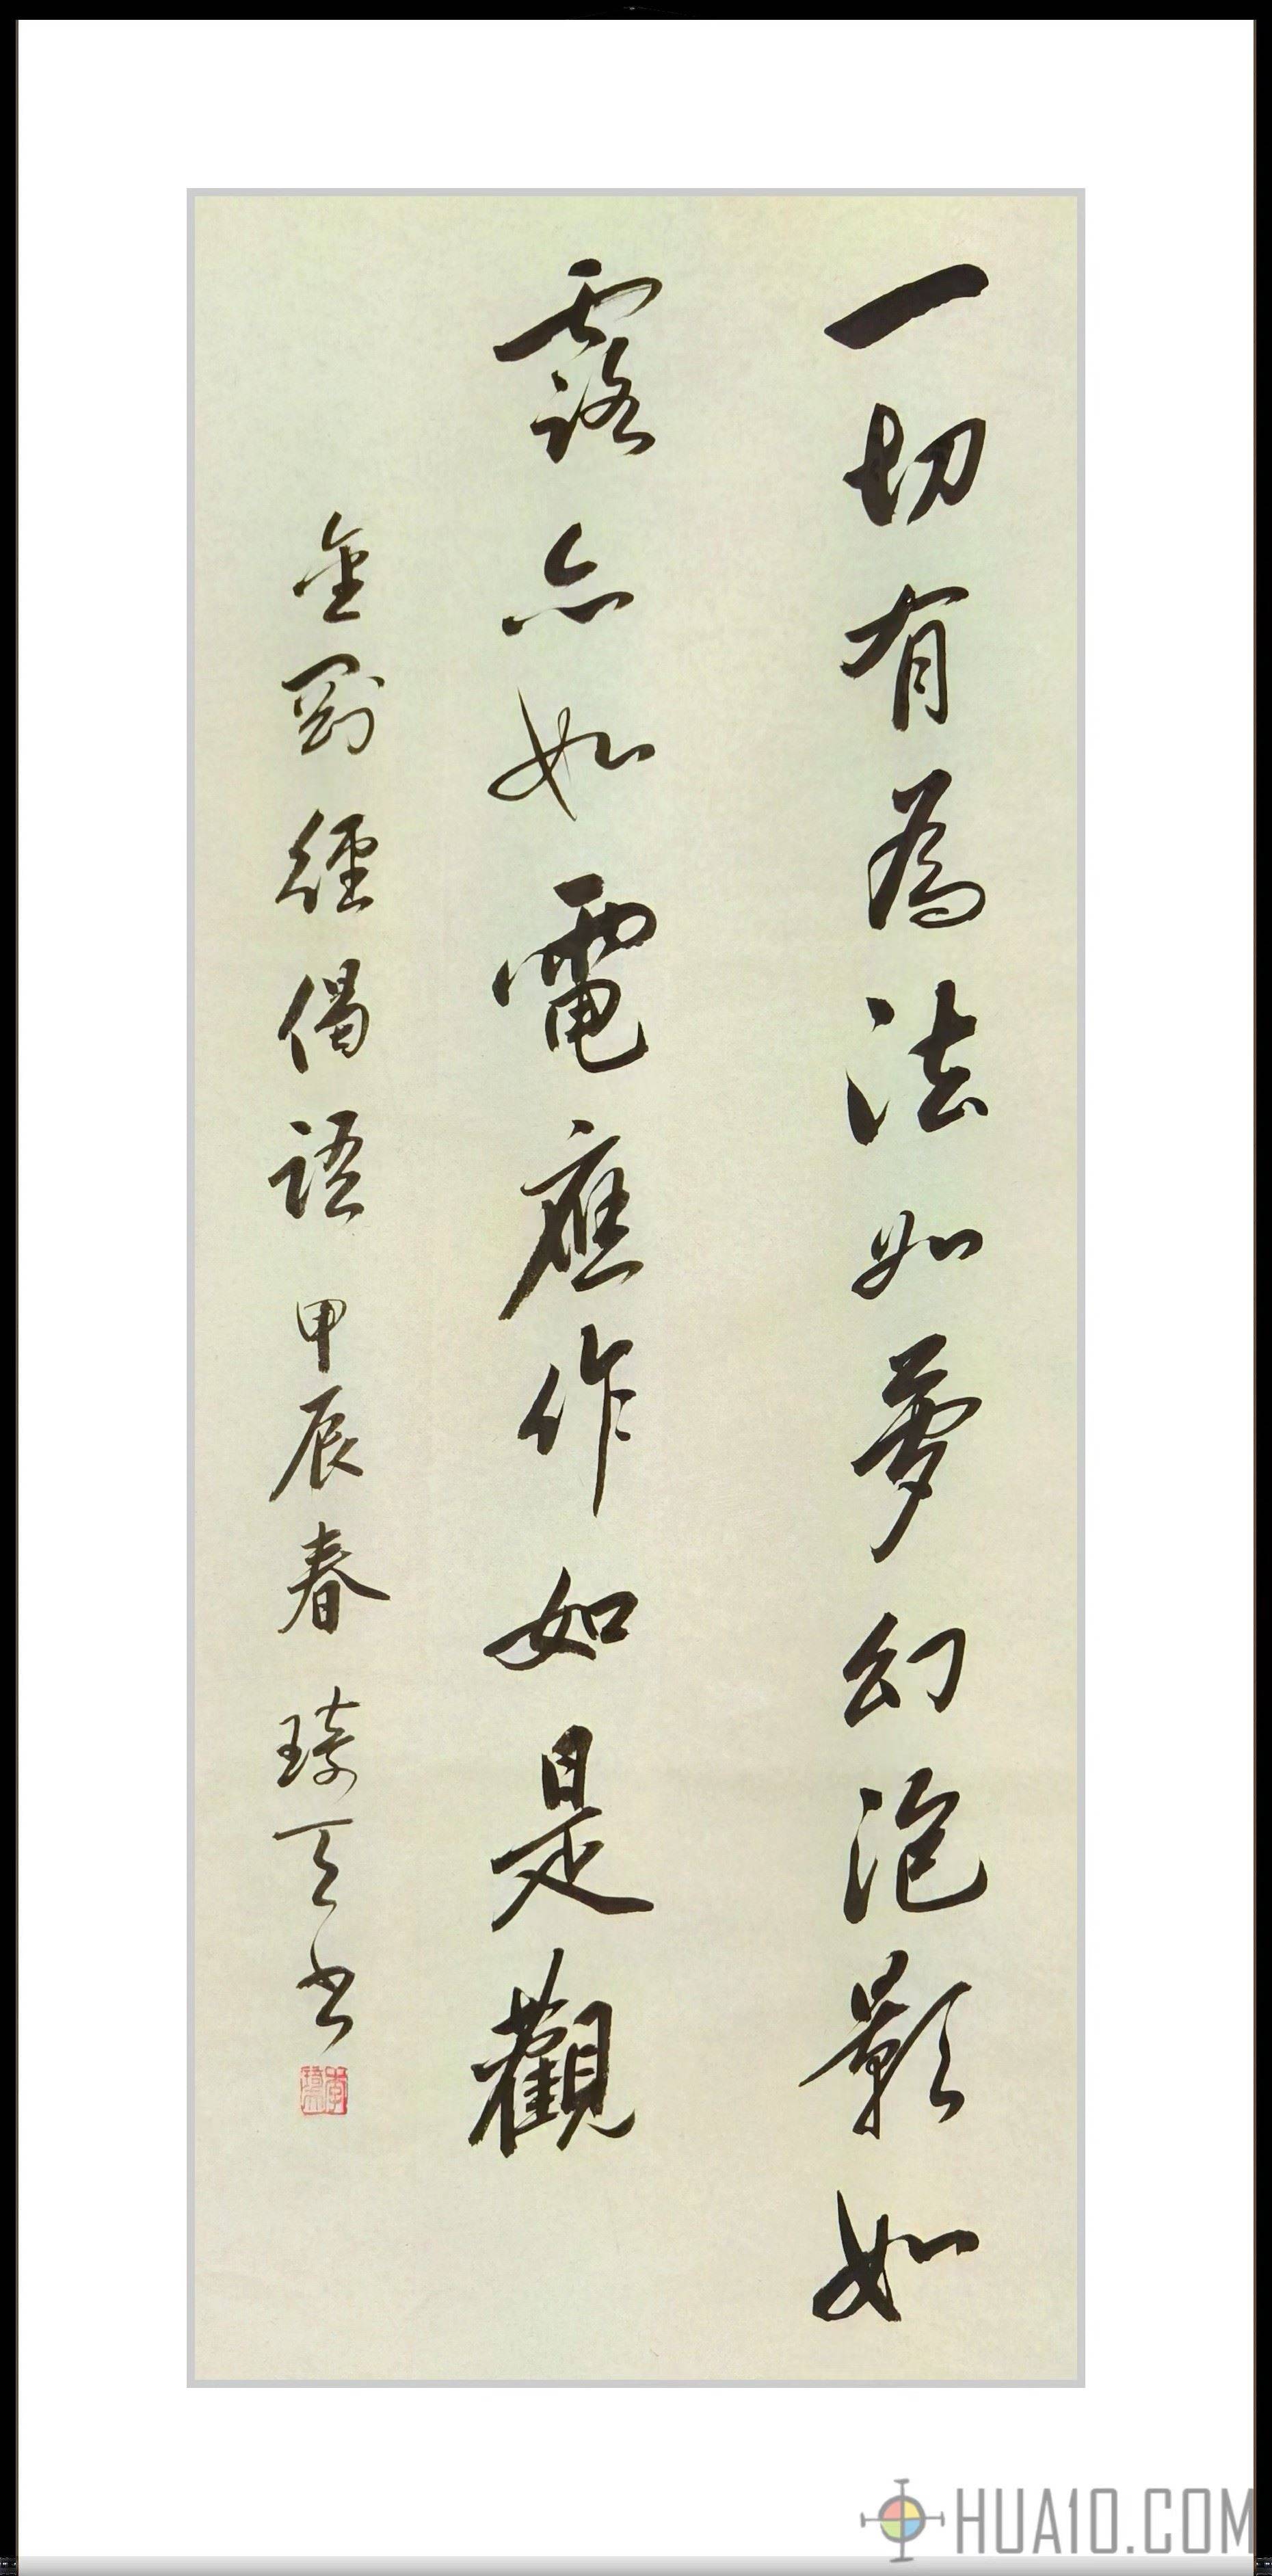 一切有為法如夢幻泡影如
露亦如電應作如是觀
金剛經偈語 甲辰春 琦天书
HUA10.COM